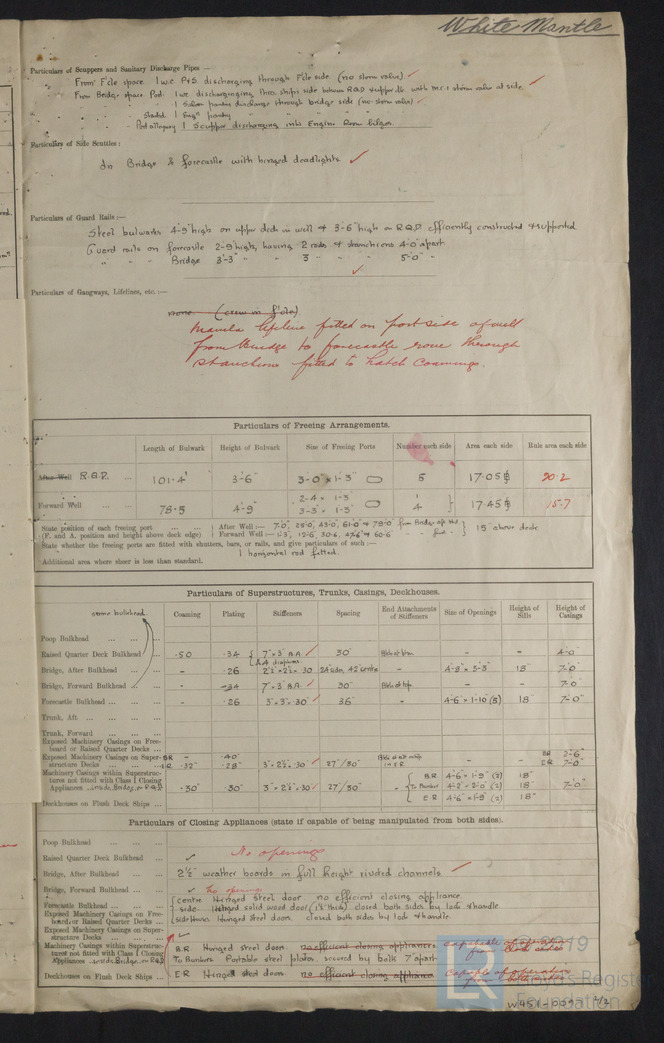 White Mantle
Particulars of Scuppers and Sanitary Discharge Pipes —
From F'cle space 1 w.c. P&S discharging through F'cle side (no storm valve) ✓
From Bridge space Port 1 w.c. discharging thro ships side between RQD & upper dk with M.C.I storm valve at side ✓
1 Saloon pantry discharge through bridge side (no storm valve) ✓
Starbd 1 Engrs pantry " " " "
Port alleyway 1 Scupper discharging into Engine Room bilges
Particulars of Side Scuttles:
In Bridge & forecastle with hinged deadlights ✓
Particulars of Guard Rails:—
Steel bulwarks 4'-9" high on upper deck in well & 3'-6" high on R.Q.D. efficiently constructed & supported
Guard rails on forecastle 2'-9" high, having 2 rods & stanchions 4'-0" apart
" " " Bridge 3'-3" " " 3 " " " 5'-0" "
✓
Particulars of Gangways, Lifelines, etc.:—
none (crew in f'cle)
Manila lifeline fitted on port side of well
from Bridge to forecastle rove through
stanchions fitted to hatch coamings.
Particulars of Freeing Arrangements.
Length of Bulwark Height of Bulwark Size of Freeing Ports Number each side Area each side Rule area each side
After Well R.Q.D. ... 101.4' 3'-6" 3'-0" x 1'-3" 5 17.05 20.2
Forward Well ... 78.5 4'-9" 2'-4" x 1'-3" 1
3'-3" x 1'-3" 4 } 17.45 15.7
State position of each freeing port ... ... { After Well:— 7'-0", 25'-0", 43'-0", 61'-0" & 78'-0" from Bridge aft bhd
(F. and A. position and height above deck edge) { Forward Well:— 1'-3", 12'-6", 30'-6, 47'-6" & 60'-6 " " front " } 15" above deck
State whether the freeing ports are fitted with shutters, bars, or rails, and give particulars of such:—
1 horizontal rod fitted.
Additional area where sheer is less than standard.
Particulars of Superstructures, Trunks, Casings, Deckhouses.
same bulkhead Coaming Plating Stiffeners Spacing End Attachments of Stiffeners Size of Openings Height of Sills Height of Casings
Poop Bulkhead ... ... ...
Raised Quarter Deck Bulkhead .50 .34 { 7" x 3" B.A. ✓ 30" - - 4'-0"
Bridge, After Bulkhead ... - .26 2½" x 2½" x .30 - 4'-9" x 3'-3" 18" 7'-0"
Bridge, Forward Bulkhead ... - .34 7" x 3" B.A. ✓ 30" - - 7'-0"
Forecastle Bulkhead ... ... - .26 3" x 3" x .30" ✓ 36" 4'-6" x 1'-10" 18" 7'-0"
Trunk, Aft ... ... ... ...
Trunk, Forward ... ... ...
Exposed Machinery Casings on Freeboard or Raised Quarter Decks ...
Exposed Machinery Casings on Superstructure Decks ... B.R. - .40" B.R. 2'-6"
E.R. .32" .28" 3" x 2½" x .30" ✓ 27"/30" - - E.R. 7'-0"
Machinery Casings within Superstructures not fitted with Class I Closing Appliances ... inside Bridge, on R.Q.D. .30" .30" 3" x 2½" x .30" 27"/30" - { B.R. 4'-6" x 1'-9" (2) 18"
To Bunkers 4'-2" x 2'-0" (2) 18" 7'-0"
E.R. 4'-6" x 1'-9" (2) 18"
Deckhouses on Flush Deck Ships ...
Particulars of Closing Appliances (state if capable of being manipulated from both sides).
Poop Bulkhead ... ... ...
Raised Quarter Deck Bulkhead ... ✓ No openings
Bridge, After Bulkhead ... ... 2½" weather boards in full height riveted channels ✓
Bridge, Forward Bulkhead ... ✓ No openings
Forecastle Bulkhead ... ... { centre Hinged steel door no efficient closing appliance.
side Hinged solid wood door (1¾" thick) closed both sides by lock & handle
Exposed Machinery Casings on Freeboard, or Raised Quarter Decks ... Hinged steel door. closed both sides by lock & handle.
Exposed Machinery Casings on Superstructure Decks ... ... ✓
Machinery Casings within Superstructures not fitted with Class I Closing Appliances ... inside Bridge, on R.Q.D. B.R. Hinged steel door no efficient closing appliances capable of operation from both sides
To Bunkers Portable steel plates, secured by bolts 7" apart
Deckhouses on Flush Deck Ships ... E.R. Hinged steel doors no efficient closing appliance capable of operation from both sides
© 2019
LR Lloyd's Register
Foundation
W451-0059 1/2